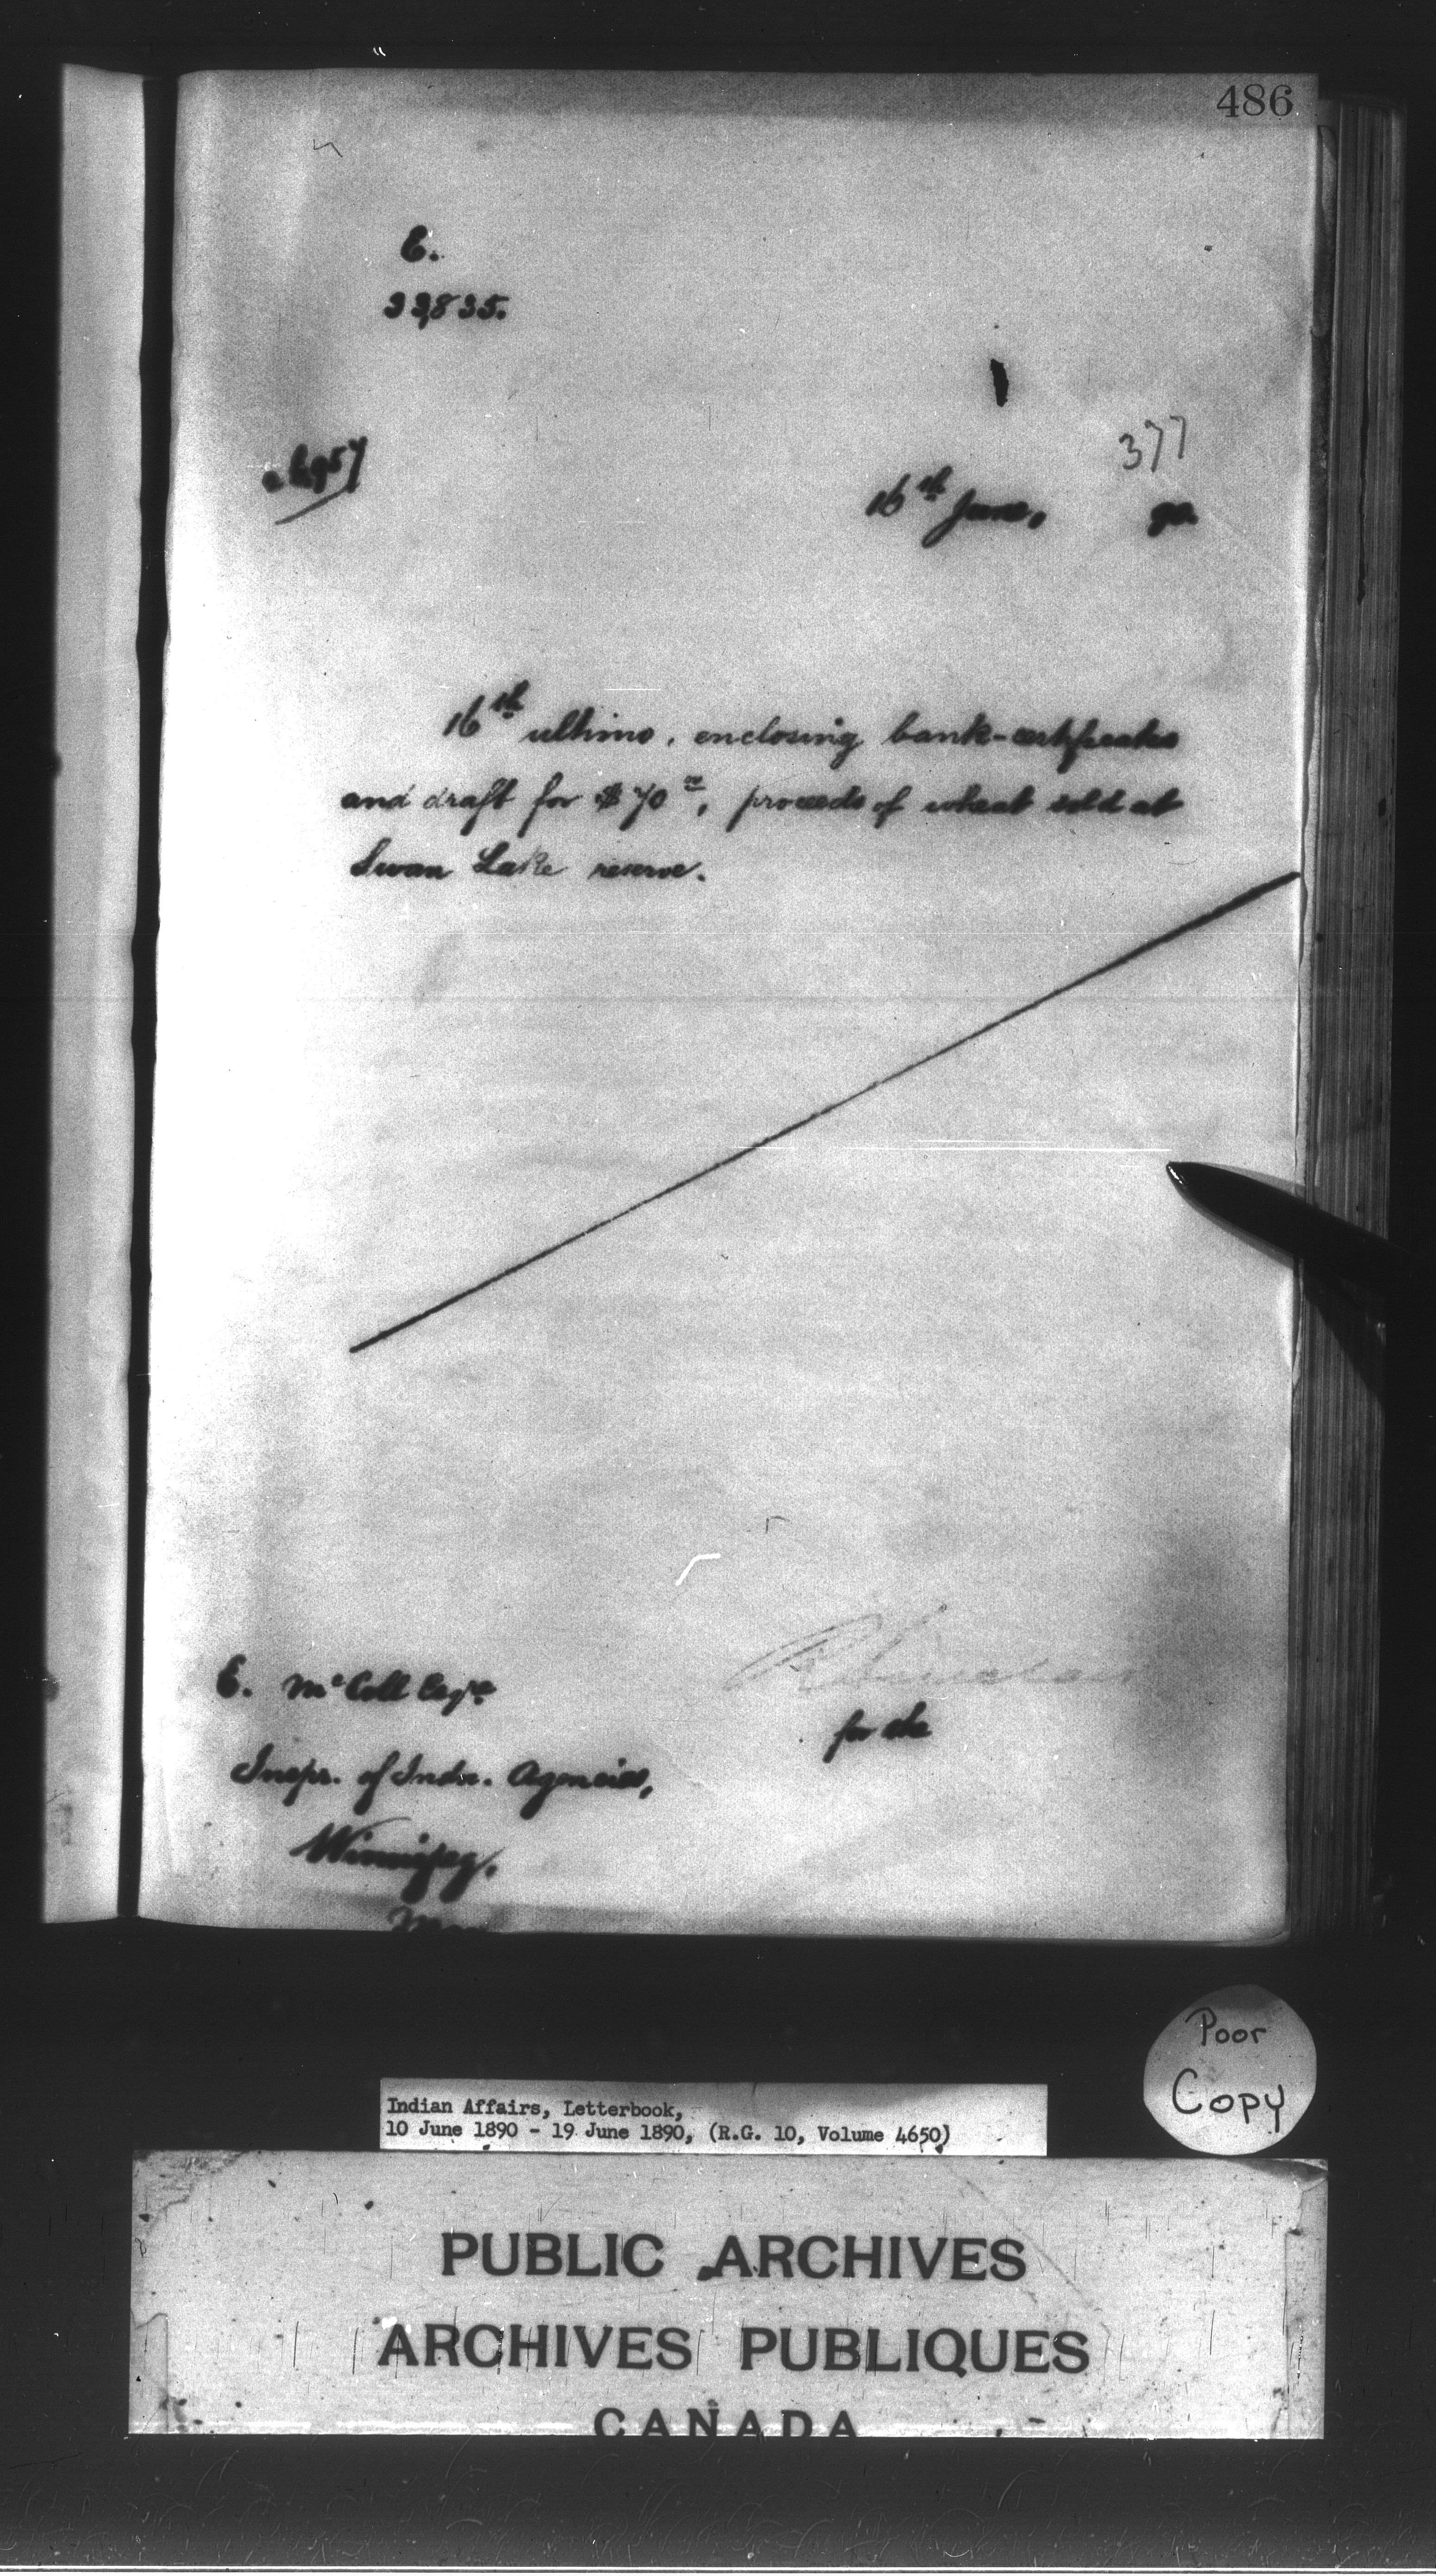 486
E.
33,835.
377
16th June, 90.
16th ultimo, enclosing bank-certificates
and draft for $70 00, proceeds of wheat sold at
Swan Lake reserve.
E. McColl Esqre
for the
Inspr. of Indn. Agencies,
Winnipeg.
Man
Poor
Copy
Indian Affairs, Letterbook,
10 June 1890 - 19 June 1890, (R.G. 10, Volume 4650)
PUBLIC ARCHIVES
ARCHIVES PUBLIQUES
CANADA